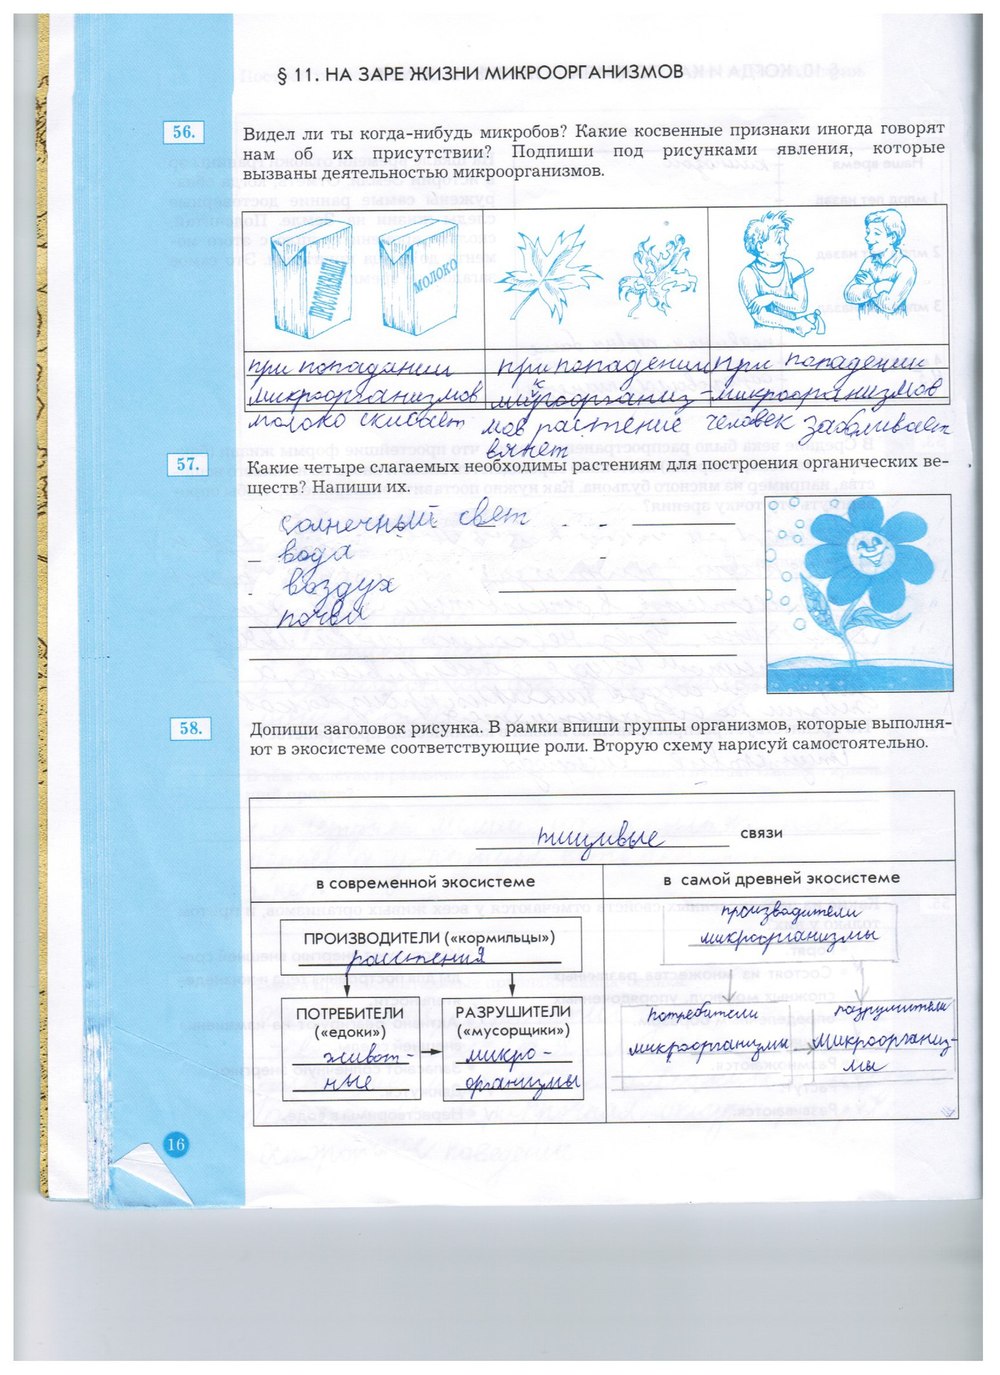 § 11. НА ЗАРЕ ЖИЗНИ МИКРООРГАНИЗМОВ
56.
Видел ли ты когда-нибудь микробов? Какие косвенные признаки иногда говорят
нам об их присутствии? Подпиши под рисунками явления, которые
вызваны деятельностью микроорганизмов.
ПРОСТОКВАША
МОЛОКО
при попадании
микроорганизмов
молоко скисает
при попадении
микроорганиз-
мов растение
вянет
при попадении
микроорганизмов
человек заболивает
57.
Какие четыре слагаемых необходимы растениям для построения органических ве-
ществ? Напиши их.
солнечный свет
вода
воздух
почва
58.
Допиши заголовок рисунка. В рамки впиши группы организмов, которые выполня-
ют в экосистеме соответствующие роли. Вторую схему нарисуй самостоятельно.
пищивые связи
в современной экосистеме
ПРОИЗВОДИТЕЛИ («кормильцы»)
растения
ПОТРЕБИТЕЛИ
(«едоки»)
живот-
ные
РАЗРУШИТЕЛИ
(«мусорщики»)
микро-
организмы
в самой древней экосистеме
производители
микроорганизмы
потребители
микроорганизмы
разрушители
микроорганиз-
мы
16